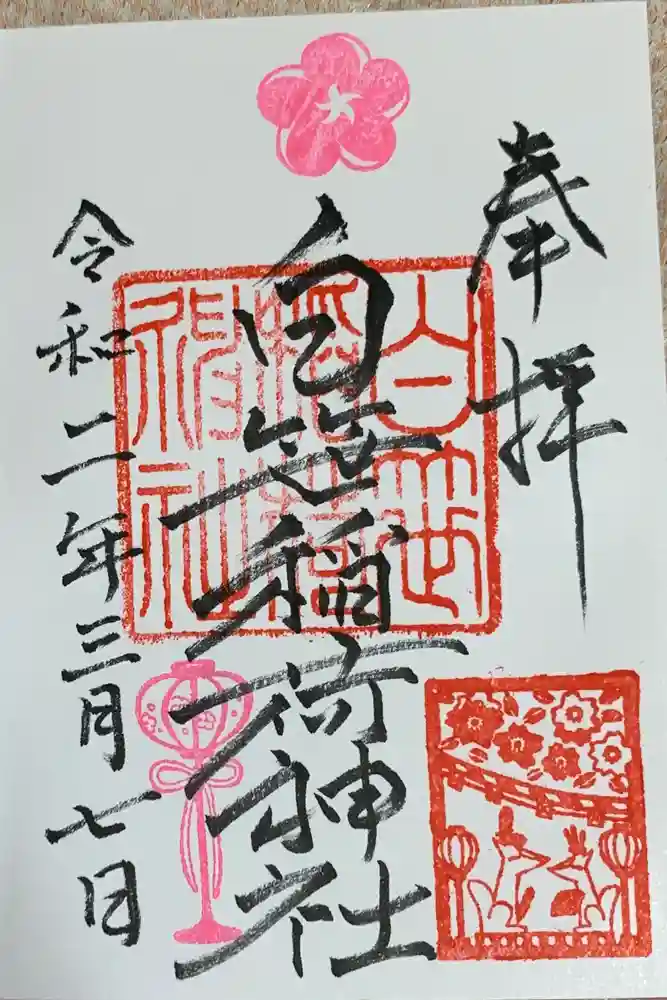 奉拝
白笹稲荷神社
白笹
稲荷
神社
令和二年三月七日